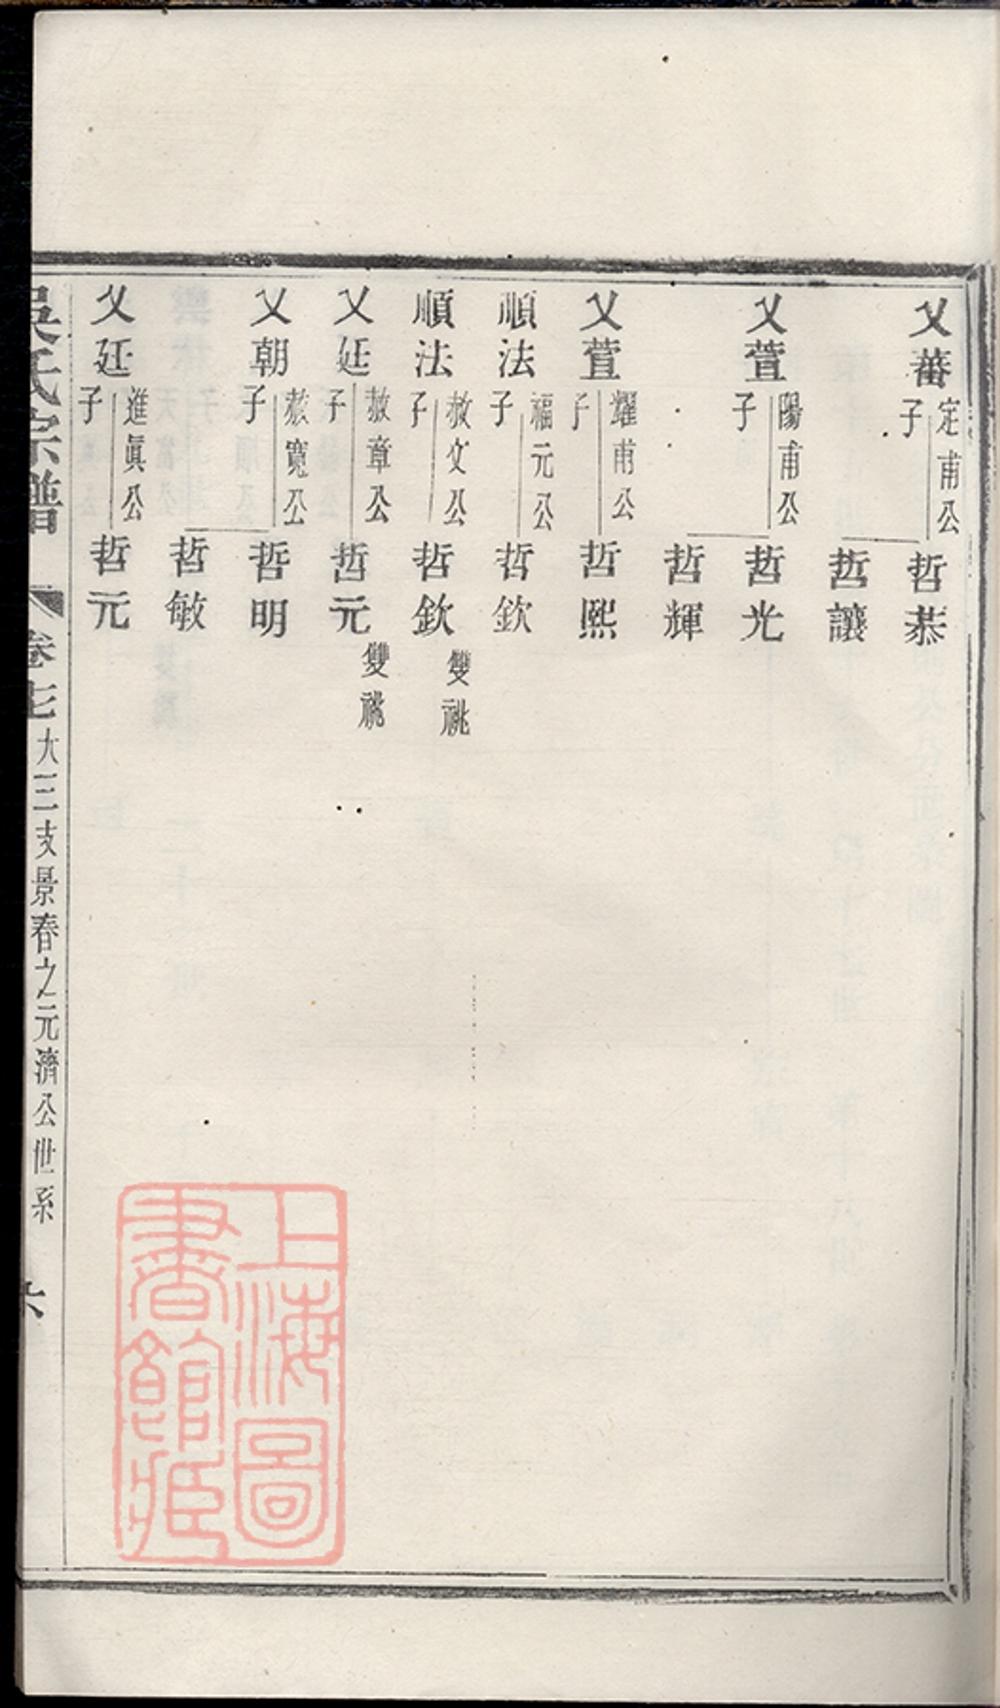 父蕃 定甫公子
哲恭
哲讓
父萱 陽甫公子
哲光
哲輝
父萱 耀甫公子
哲熙
順法 福元公子
哲欽
順法 敖文公子
哲欽 雙祧
父廷 敖章公子
哲元 雙祧
父朝 敖寬公子
哲明
哲敏
父廷 進眞公子
哲元
吳氏宗譜 卷七 大三支景春之元濟公世系 六
上海圖書館藏